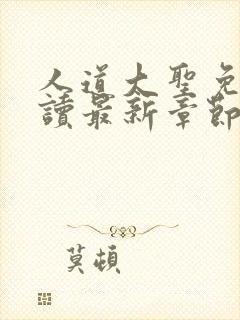 人道大聖免
讀最新章節
莫頓